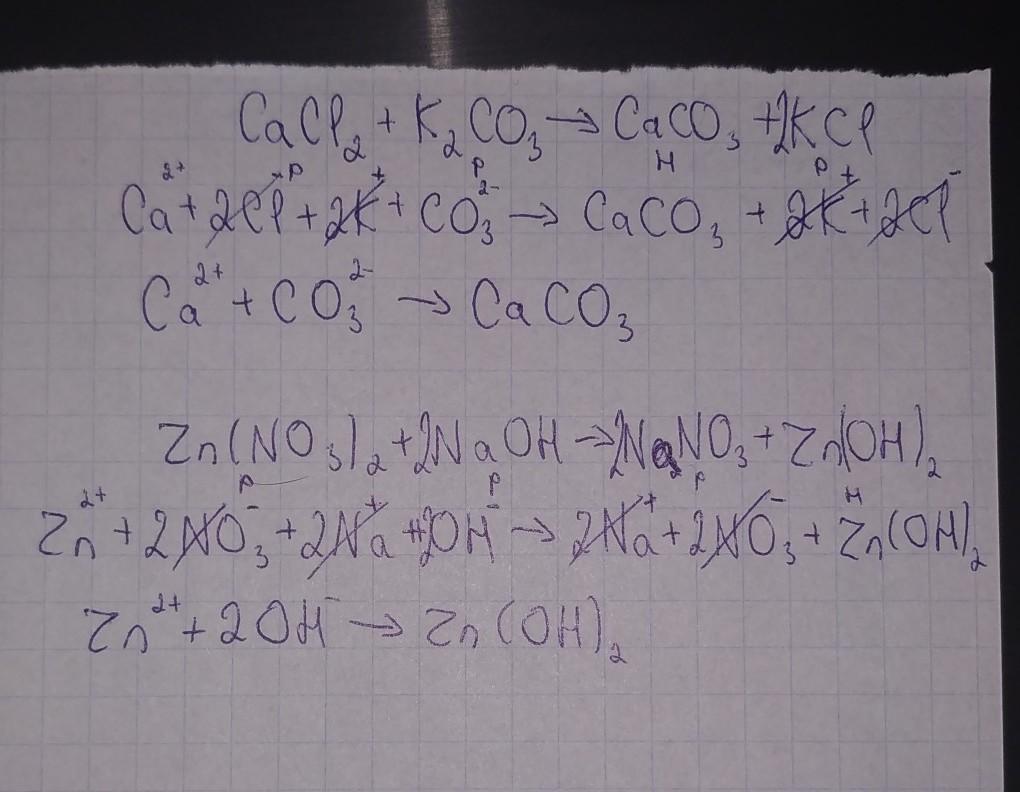 CaCl₂ + K₂CO₃ → CaCO₃ + 2KCl
р р н р
Ca²⁺ + 2Cl⁻ + 2K⁺ + CO₃²⁻ → CaCO₃ + 2K⁺ + 2Cl⁻
Ca²⁺ + CO₃²⁻ → CaCO₃
Zn(NO₃)₂ + 2NaOH → 2NaNO₃ + Zn(OH)₂
р р р н
Zn²⁺ + 2NO₃⁻ + 2Na⁺ + 2OH⁻ → 2Na⁺ + 2NO₃⁻ + Zn(OH)₂
Zn²⁺ + 2OH⁻ → Zn(OH)₂